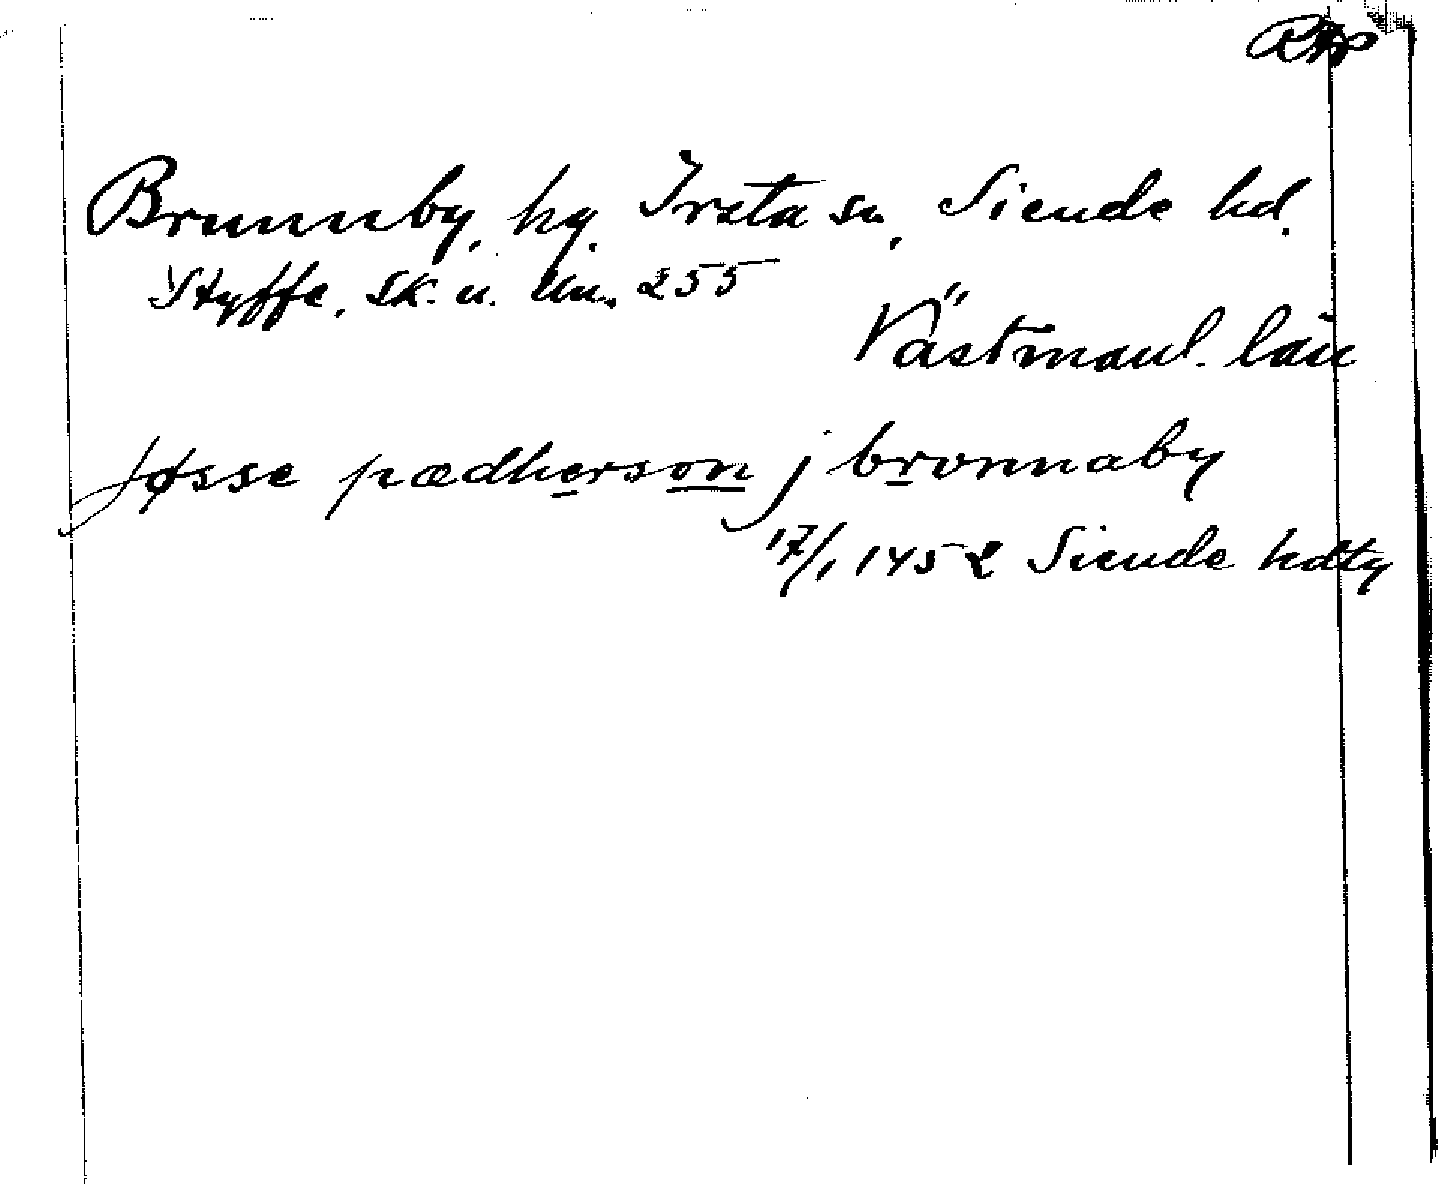 RAp
Brunnby, hg. Irsta sn, Siende hd.
Styffe, Sk. u. Un. 255
Västmanl. län
Jøsse pædherson j bronnaby
17/1 1452 Siende hdtg